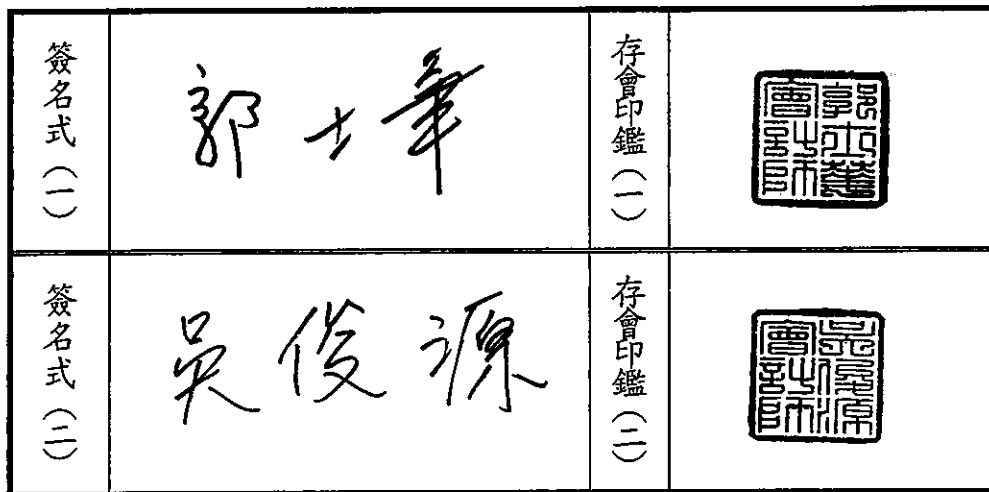 簽名式（一）
郭士華
存會印鑑（一）
郭士華會計師
簽名式（二）
吳俊源
存會印鑑（二）
吳俊源會計師